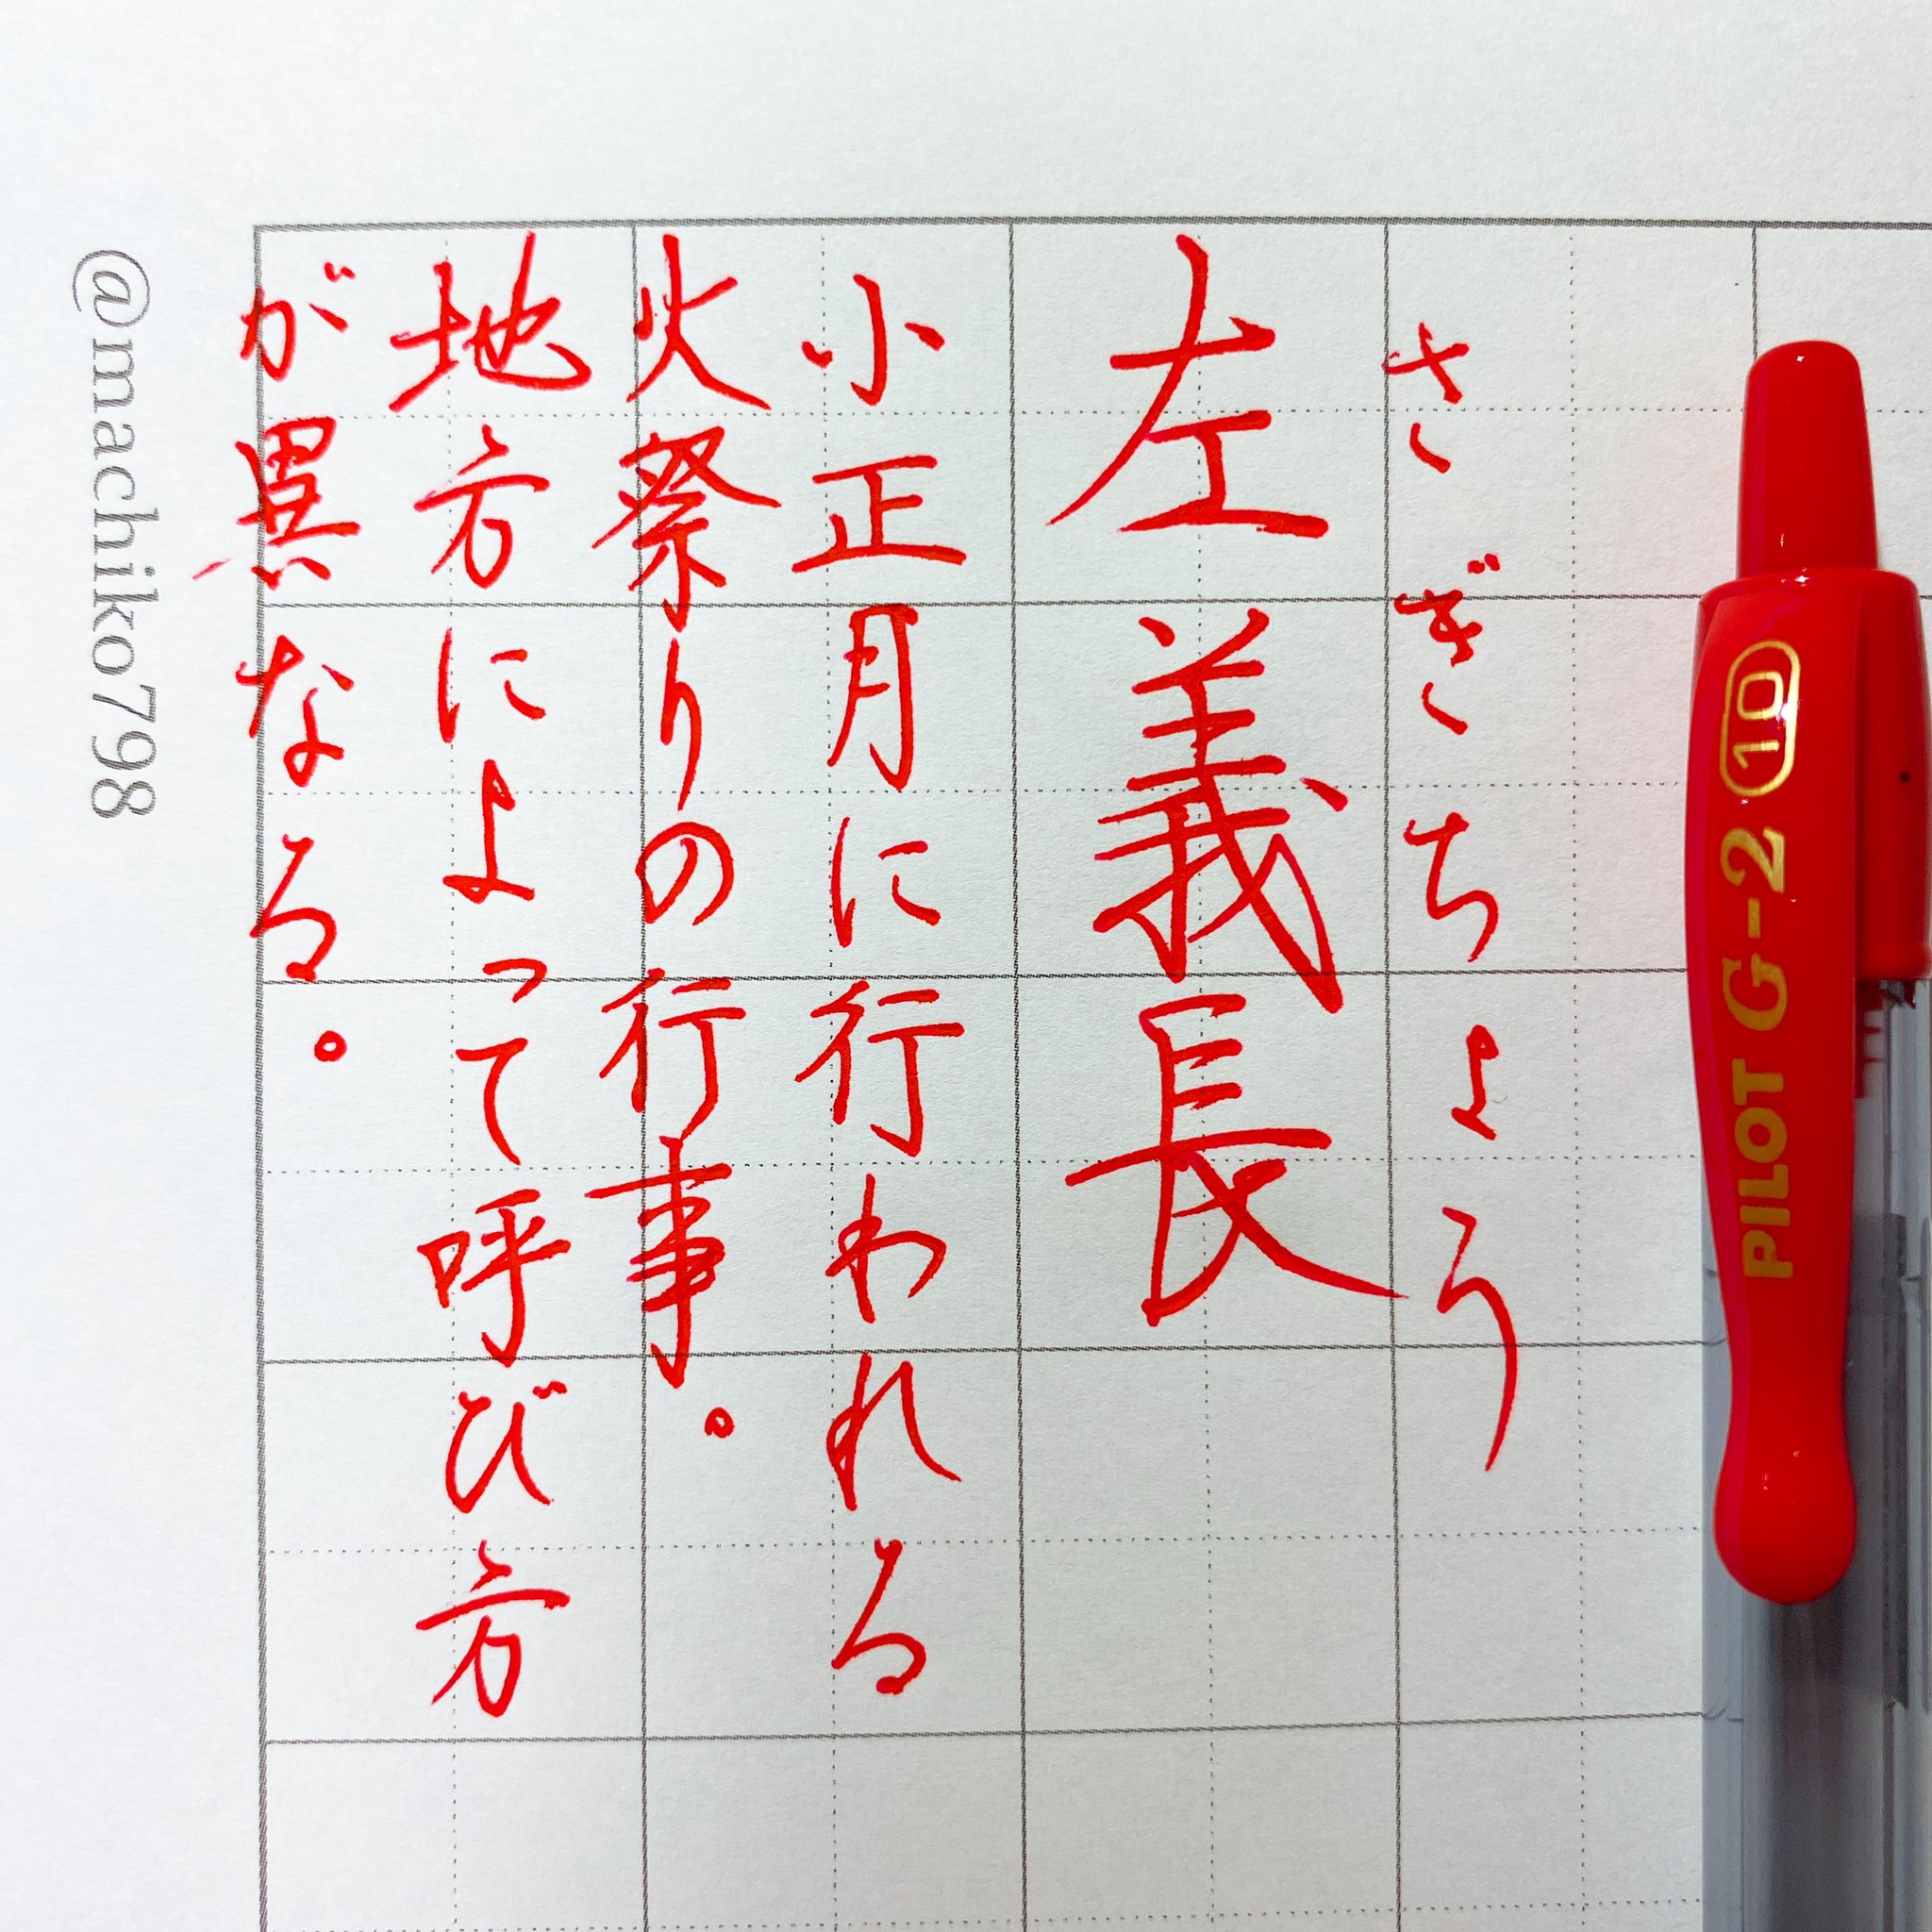 さぎちょう
左義長
小正月に行われる
火祭りの行事。
地方によって呼び方
が異なる。
@machiko798
PILOT G-2 10